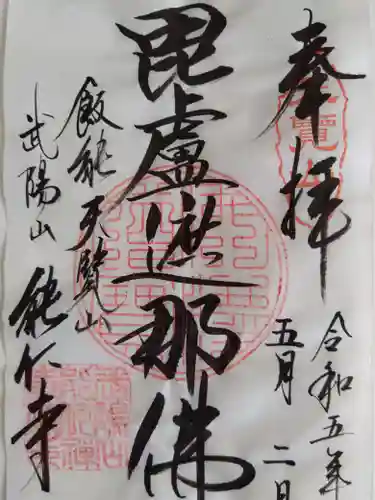 奉拝
令和五年
五月二日
毘盧遮那佛
飯能天覽山
武陽山能仁寺